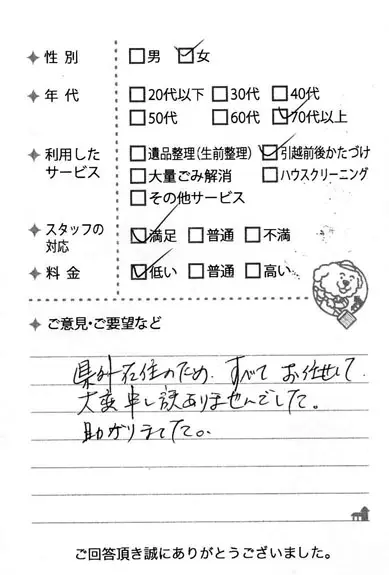 性別 □男 ☑女
年代 □20代以下 □30代 □40代
□50代 □60代 ☑70代以上
利用した □遺品整理(生前整理) ☑引越前後かたづけ
サービス □大量ごみ解消 □ハウスクリーニング
□その他サービス
スタッフの ☑満足 □普通 □不満
対応
料金 ☑低い □普通 □高い
ご意見・ご要望など
県外在住のため、すべてお任せして
大変申し訳ありませんでした。
助かりました。
ご回答頂き誠にありがとうございました。